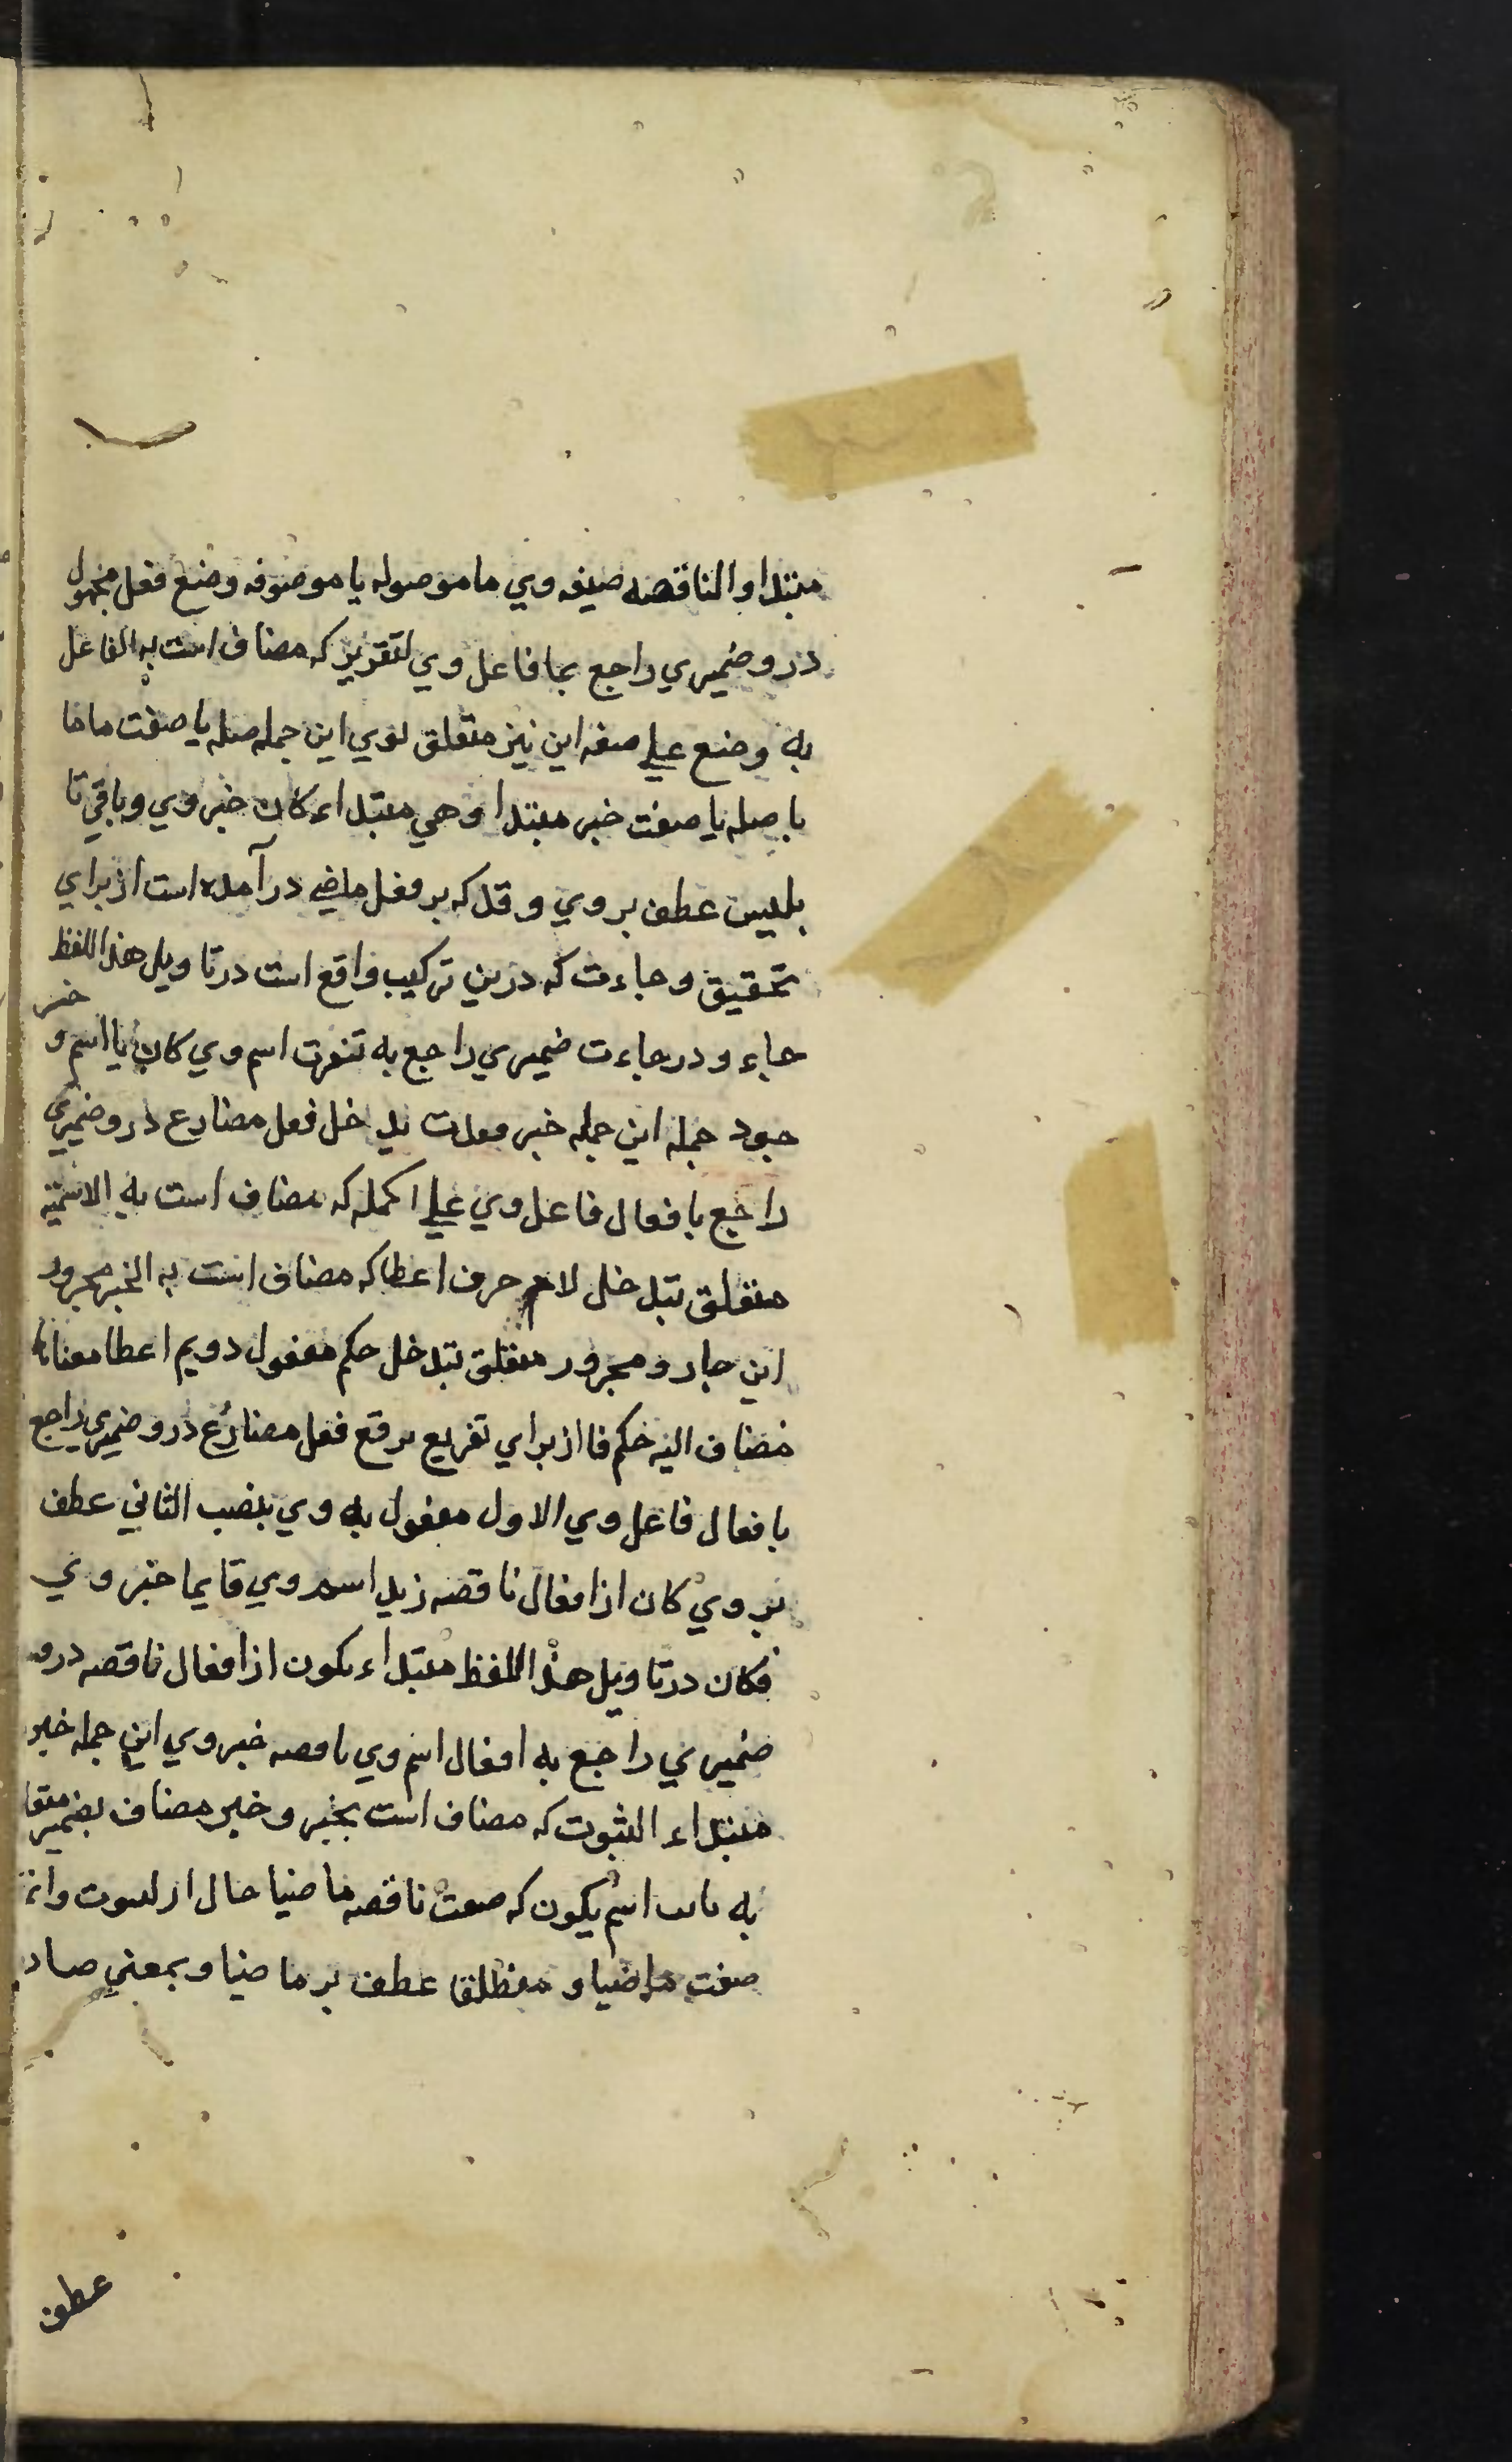 مبتدا و الناقصه صیفه وی ما موصوله یا موصوفه وضع فعل مجهول
درو ضمیری راجع بما فاعل وی لتقریر که مضاف است به الفاعل
به وضع علی صفه این نیز متعلق بوی این جمله صله یا صفت ما ما
با صله یا صفت خبر مبتدا وهی مبتداء کان خبر وی و باقی تا
بلیس عطف بر وی و قد که بر فعل ماضی در آمده است از برای
تحقیق و جاءت که درین ترکیب واقع است در تاویل هذا اللفظ
جاء و در جاءت ضمیری راجع به تغیرت اسم وی کان یا اسم و خبر
خود جمله این جمله خبر وقعدت یدخل فعل مضارع درو ضمیری
راجع بافعال فاعل وی علی الجمله که مضاف است به الاسمیه
متعلق بتدخل لام حرف اعطا که مضاف است به الخبر مجرور
این جار و مجرور متعلق بتدخل حکم مفعول دویم اعطا معناها
مضاف الیه حکم فا از برای تفریع ترفع فعل مضارع درو ضمیری راجع
بافعال فاعل وی الاول مفعول به وی بنصب الثانی عطف
بر وی کان از افعال ناقصه زید اسم وی قایما خبر وی
فکان در تاویل هذا اللفظ مبتداء یکون از افعال ناقصه درو
ضمیری راجع به افعال اسم وی ناقصه خبر وی این جمله خبر
مبتداء الثبوت که مضاف است بخبر و خبر مضاف بضمیر متعلق
به اسم یکون که صفت ناقصه ماضیا حال از ثبوت
صفت ماضیا و منقطعا عطف بر ماضیا و بمعنی صار
عطف